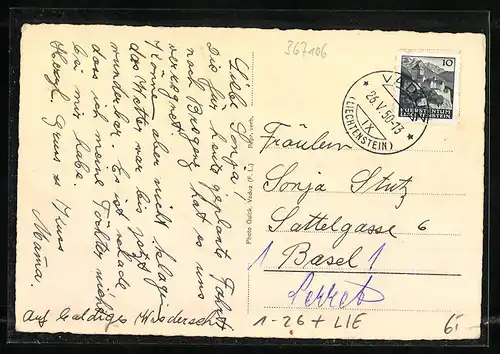 Liebe Sonja!
Die für heute geplante Fahrt
nach Bregenz hat es uns
verregnet.
Können aber nicht klagen
das Wetter war bis jetzt
wunderbar. Es ist schade
dass ich meine Tochter nicht
bei mir habe.
Herzl. Gruss & Kuss
Mama.
Auf baldiges Wiedersehn
Photo Quick, Vaduz (F. L.)
367106
VADUZ
26.V.50-13
IX
(LIECHTENSTEIN)
10
FÜRSTENTUM
LIECHTENSTEIN
Fräulein
Sonja Stutz
Sattelgasse 6
1 Basel 1
1-26 + LIE
6.-